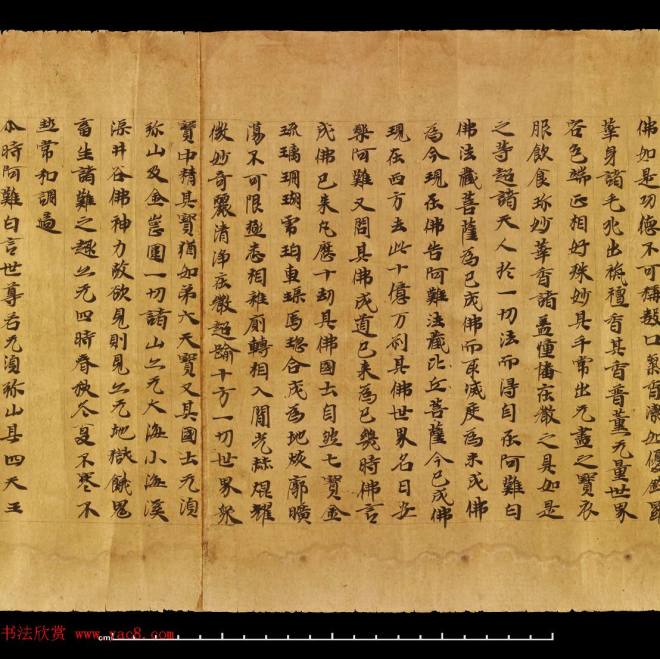 佛如是功德不可稱說口氣香潔如優鉢羅
華身諸毛孔出栴檀香其香普薰无量世界
容色端正相好殊妙其手常出无盡之寶衣
服飲食珎妙華香諸蓋幢幡莊嚴之具如是
之等超諸天人於一切法而得自在阿難白
佛法藏菩薩為已成佛而取滅度為未成佛
為今現在佛告阿難法藏比丘菩薩今已成佛
現在西方去此十億万刹其佛世界名曰安
樂阿難又問其佛成道已来為已幾時佛言
成佛已来凡歷十劫其佛國土自然七寶金
琉璃珊瑚虎珀車璖馬瑙合成為地恢廓曠
蕩不可限極悉相雜廁轉相入間光赫焜耀
微妙奇麗清淨莊嚴超踰十方一切世界衆
寶中精其寶猶如第六天寶又其國土无須
弥山及金剛圍一切諸山亦无大海小海溪
渠井谷佛神力故欲見則見亦无地獄餓鬼
畜生諸難之趣亦无四時春秋冬夏不寒不
熱常和調適
尒時阿難白言世尊若无須弥山其四天王
书法欣赏 www.yac8.com
cm